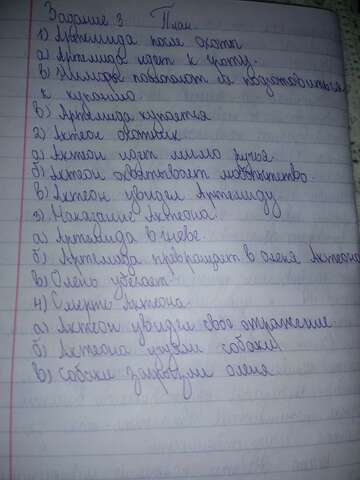 Задание 3. План.
1) Артемида после охоты
а) Артемида идет к гроту.
б) Нимфы помогают ей подготовиться
к купанию
в) Артемида купается
2) Актеон охотник
а) Актеон идет мимо ручья
б) Актеон охватывает любопытство.
в) Актеон увидел Артемиду.
3) Наказание Актеона
а) Артемида в гневе.
б) Артемида превращает в оленя Актеона
в) Олень убегает
4) Смерть Актеона
а) Актеон увидел свое отражение
б) Актеона учуяли собаки
в) собаки загрызли оленя